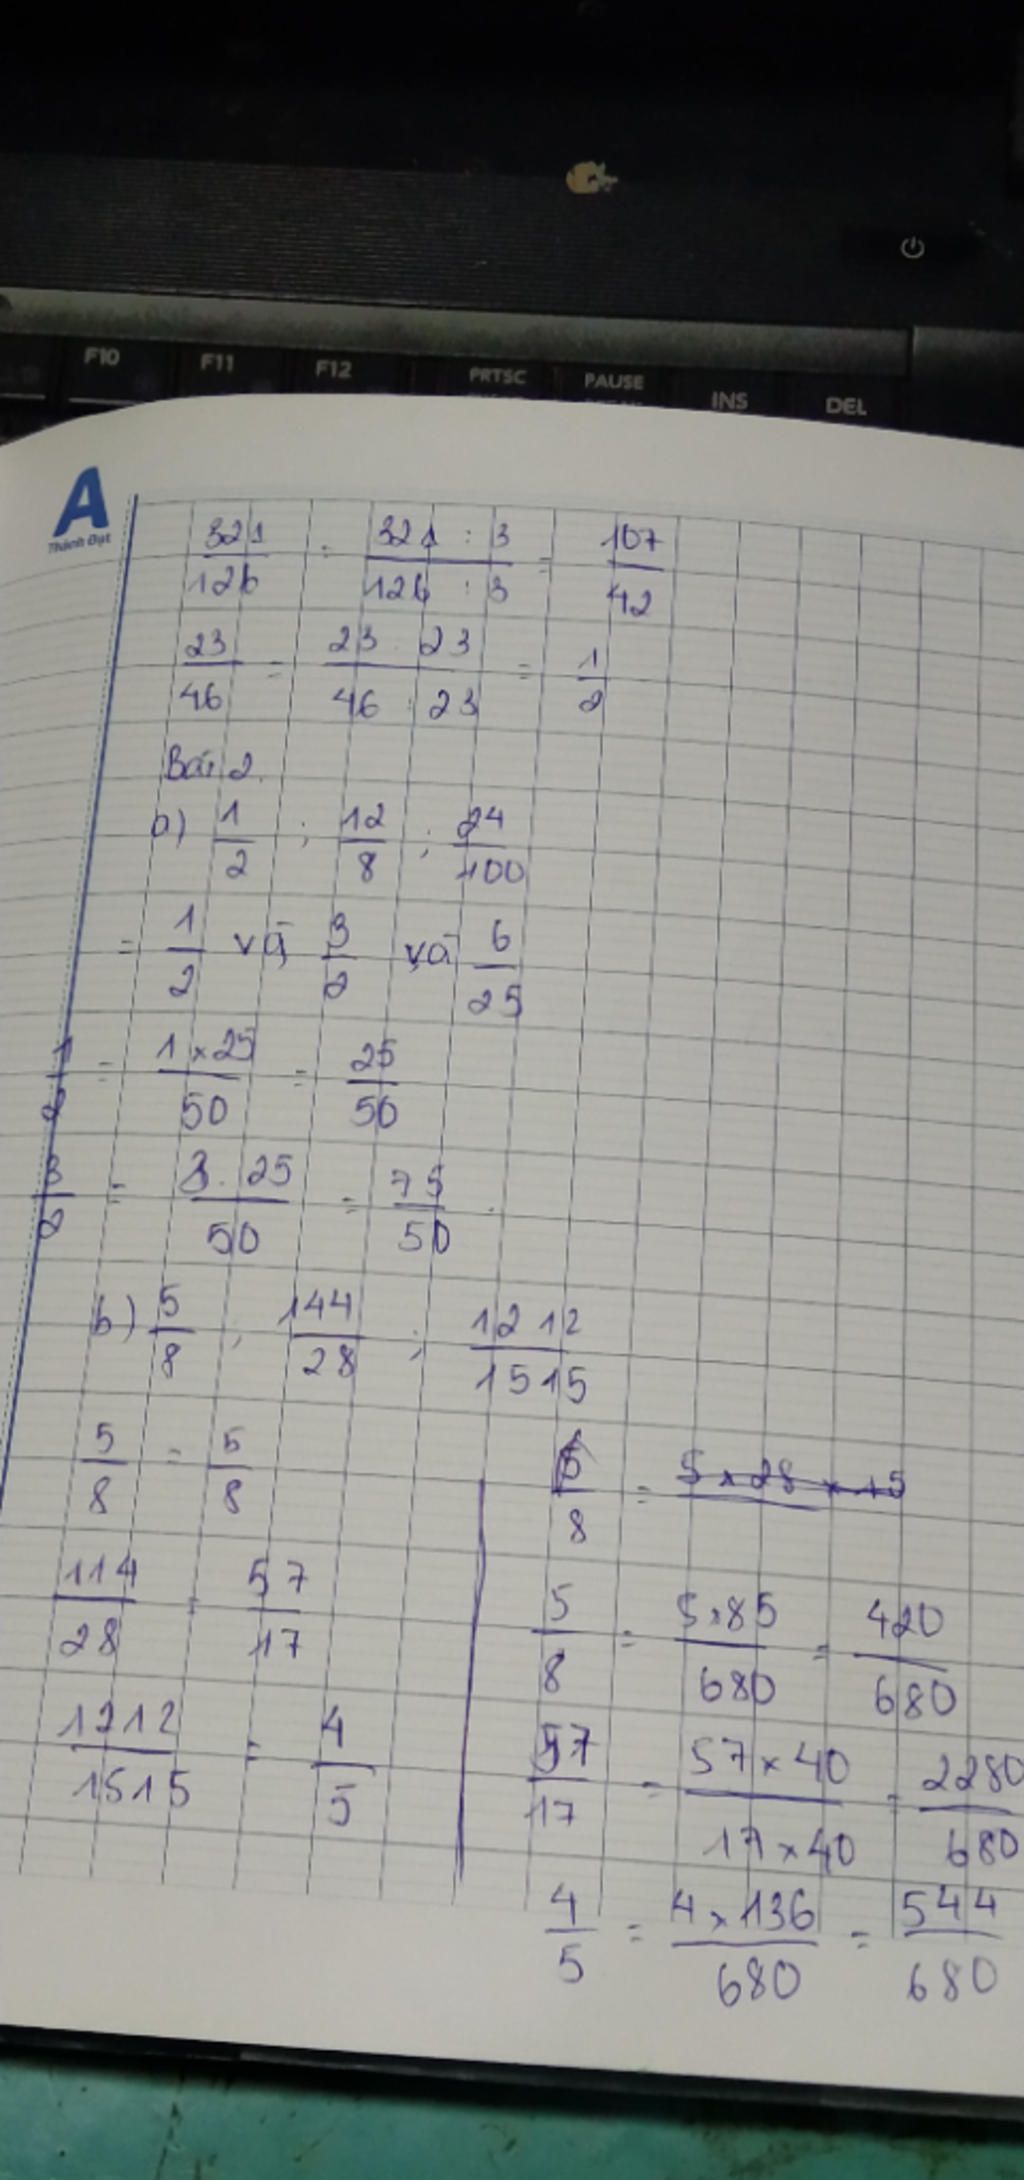 F10 F11 F12 PRTSC PAUSE INS DEL
A
Thành Đạt
321/126 = 321 : 3/126 : 3 = 107/42
23/46 = 23 : 23/46 : 23 = 1/2
Bài 2.
a) 1/2 ; 12/8 ; 24/100
= 1/2 và 3/2 và 6/25
1/2 = 1 × 25/50 = 25/50
3/2 = 3 . 25/50 = 75/50
b) 5/8 ; 144/28 ; 1212/1515
5/8 = 5/8
114/28 = 57/17
1212/1515 = 4/5
5/8 = 5 × 28 × 15
5/8 = 5 × 85/680 = 420/680
57/17 = 57 × 40/17 × 40 = 2280/680
4/5 = 4 × 136/680 = 544/680